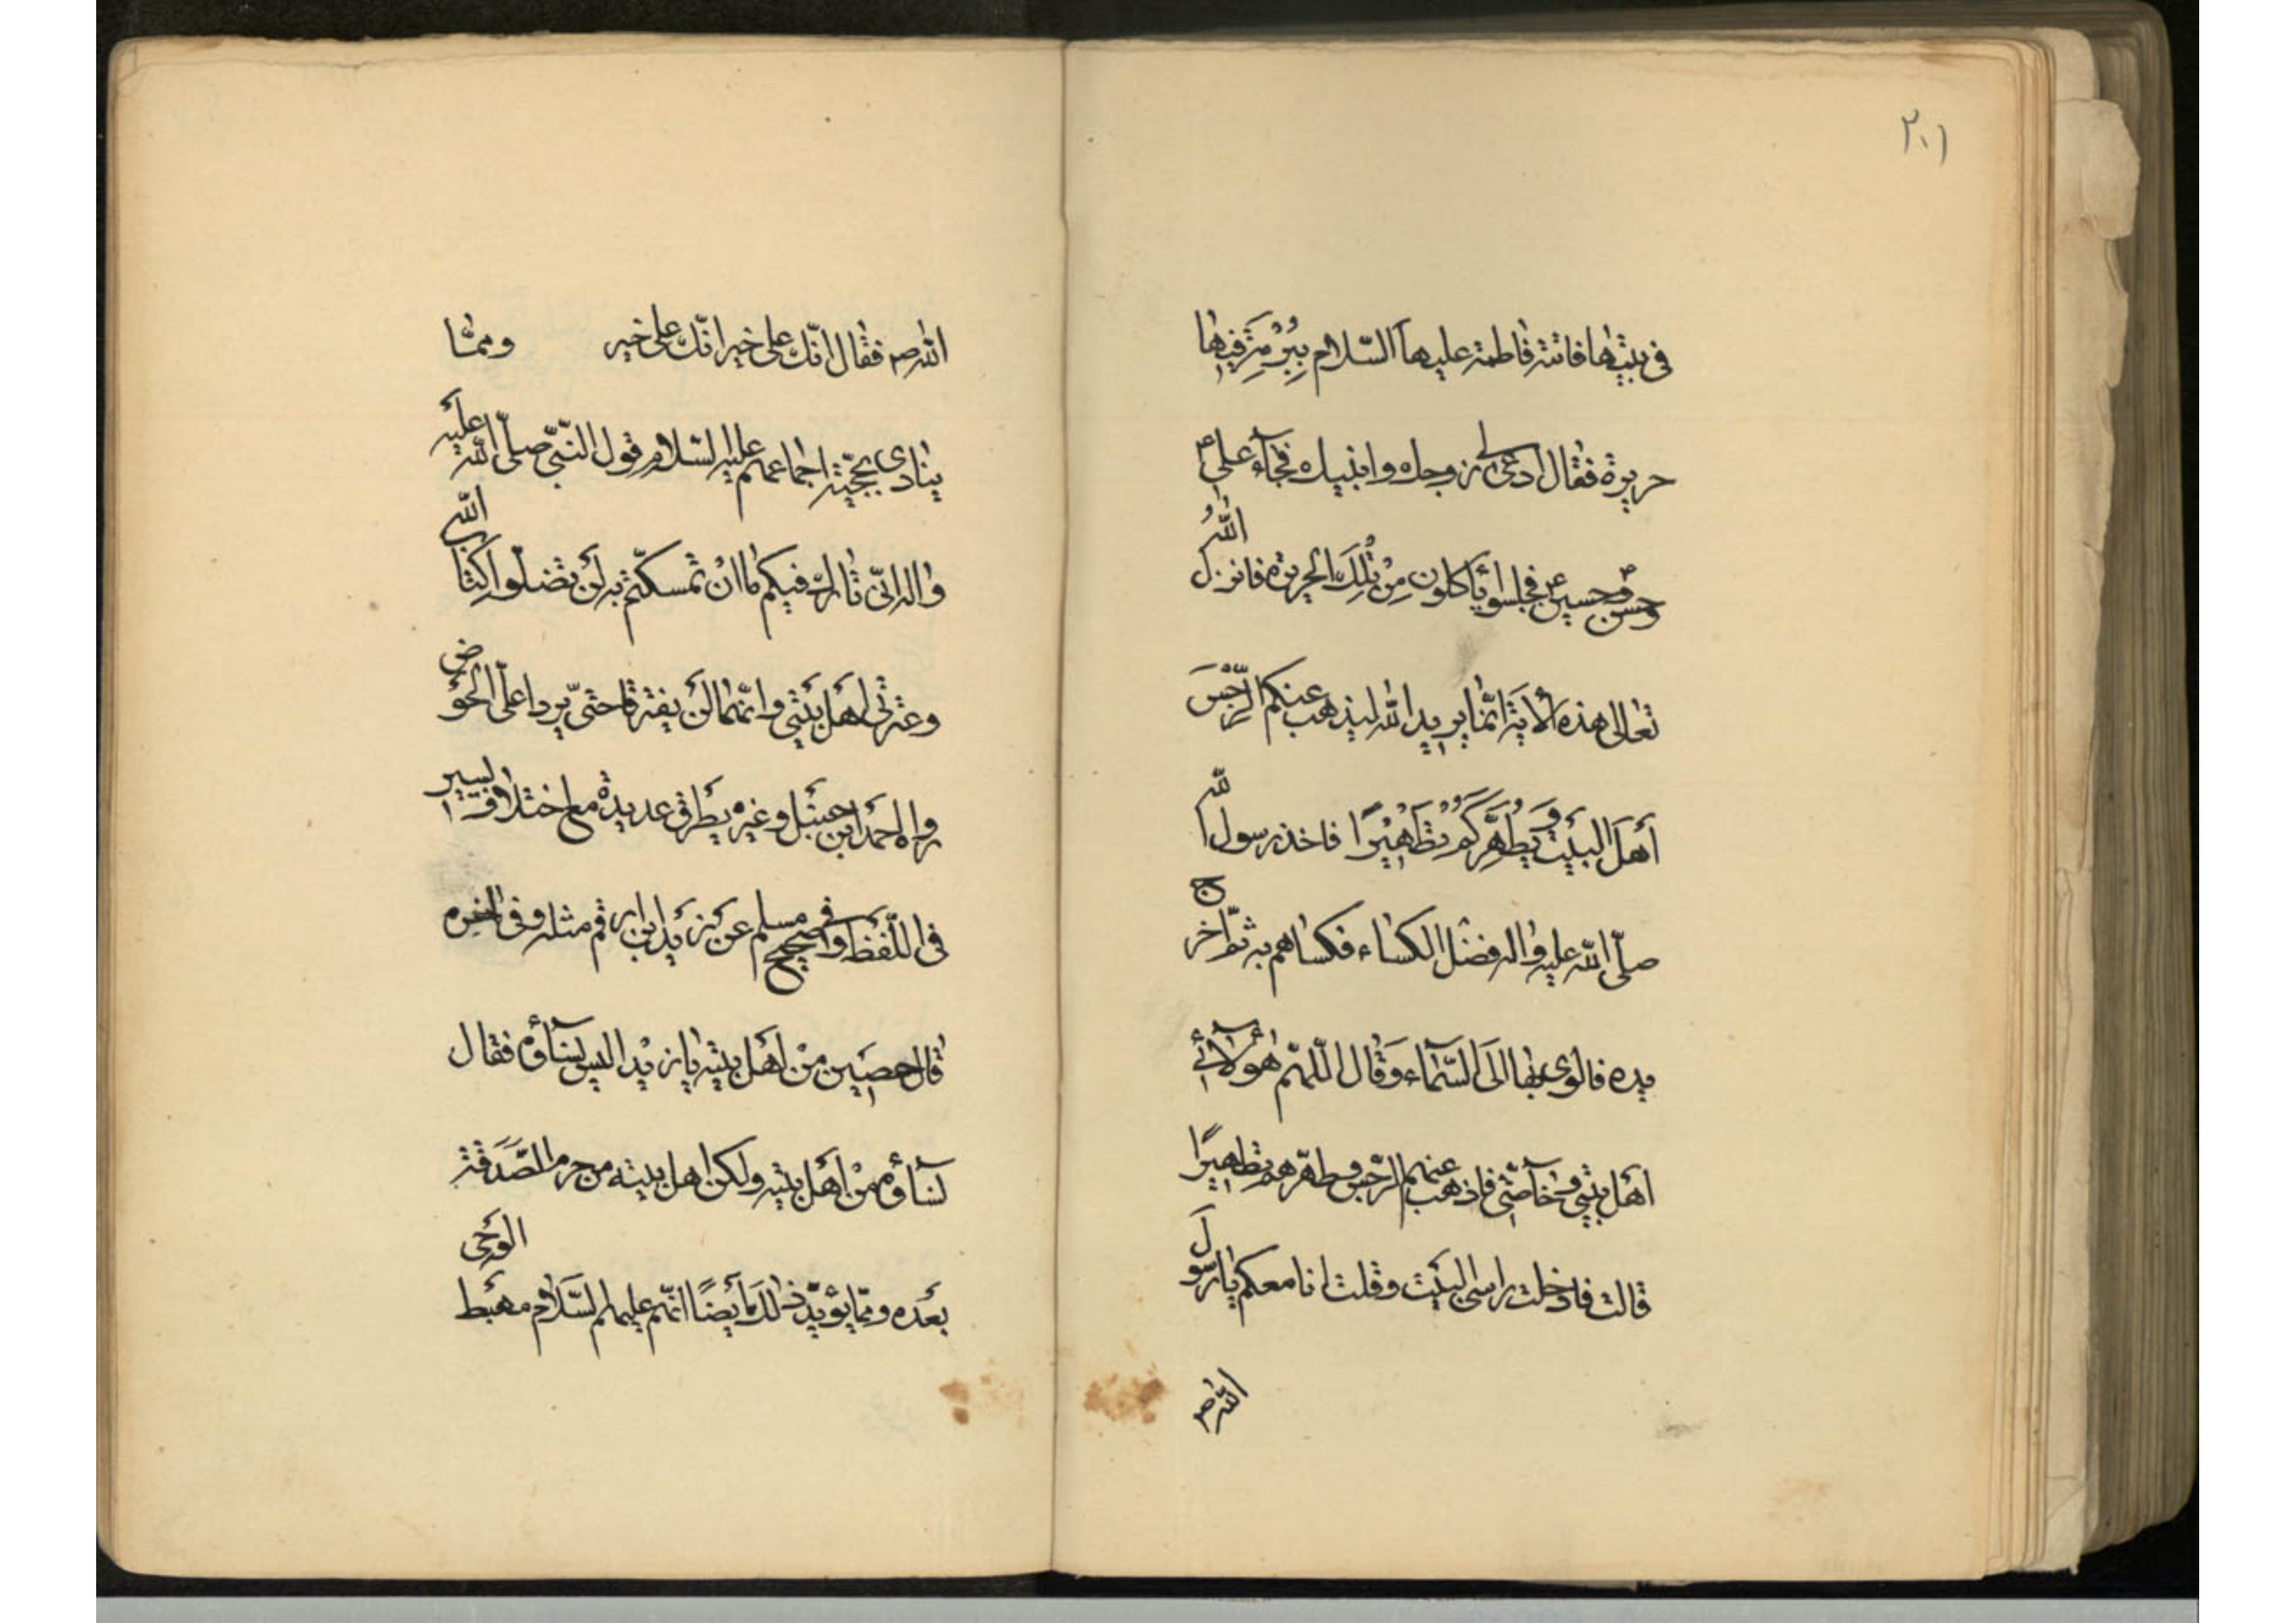 ٢٠١
في بيتها فاتته فاطمة عليها السّلام ببرمة فيها
حريرة فقال ادعى لي زوجك وابنيك فجآء علي ع
وحسن ع وحسين ع فجلسوا يأكلون من تلك الحريرة فانزل الله
تعالى هذه الاية انّما يريد الله ليذهب عنكم الرّجس
أهل البيت ويطهّركم تطهيرًا فاخذ رسول الله
صلّى الله عليه واله فضل الكساء فكساهم به ثمّ اخرج
يده فالوى بها الى السّمآء وقال اللّهمّ هؤلآء
اهل بيتي وخآصّتي فاذهب عنهم الرّجس وطهّرهم تطهيرًا
قالت فادخلت راسي البيت وقلت انا معكم يا رسول
الله ص
الله ص فقال انّك على خير انّك على خير وممّا
ينادى بحجّية اجماعهم عليهم السّلام قول النّبيّ صلّى الله عليه
واله انّي تارك فيكم ما ان تمسكتم به لن تضلّوا كتاب الله
وعترتي اهل بيتي وانّهما لن يفترقا حتى يردا علىّ الحوض
رواه احمد ابن حنبل وغيره بطرق عديدة مع اختلاف يسير
في اللّفظ وفي صحيح مسلم عن زيد ابن ارقم مثله وفي اخره
قال حصين من اهل بيته يا زيد اليس نسآؤه فقال
نسآؤه من أهل بيته ولكن اهل بيته من حرم الصّدقة
بعده وممّا يؤيّد ذلك أيضًا انّهم عليهم السّلام مهبط الوحي